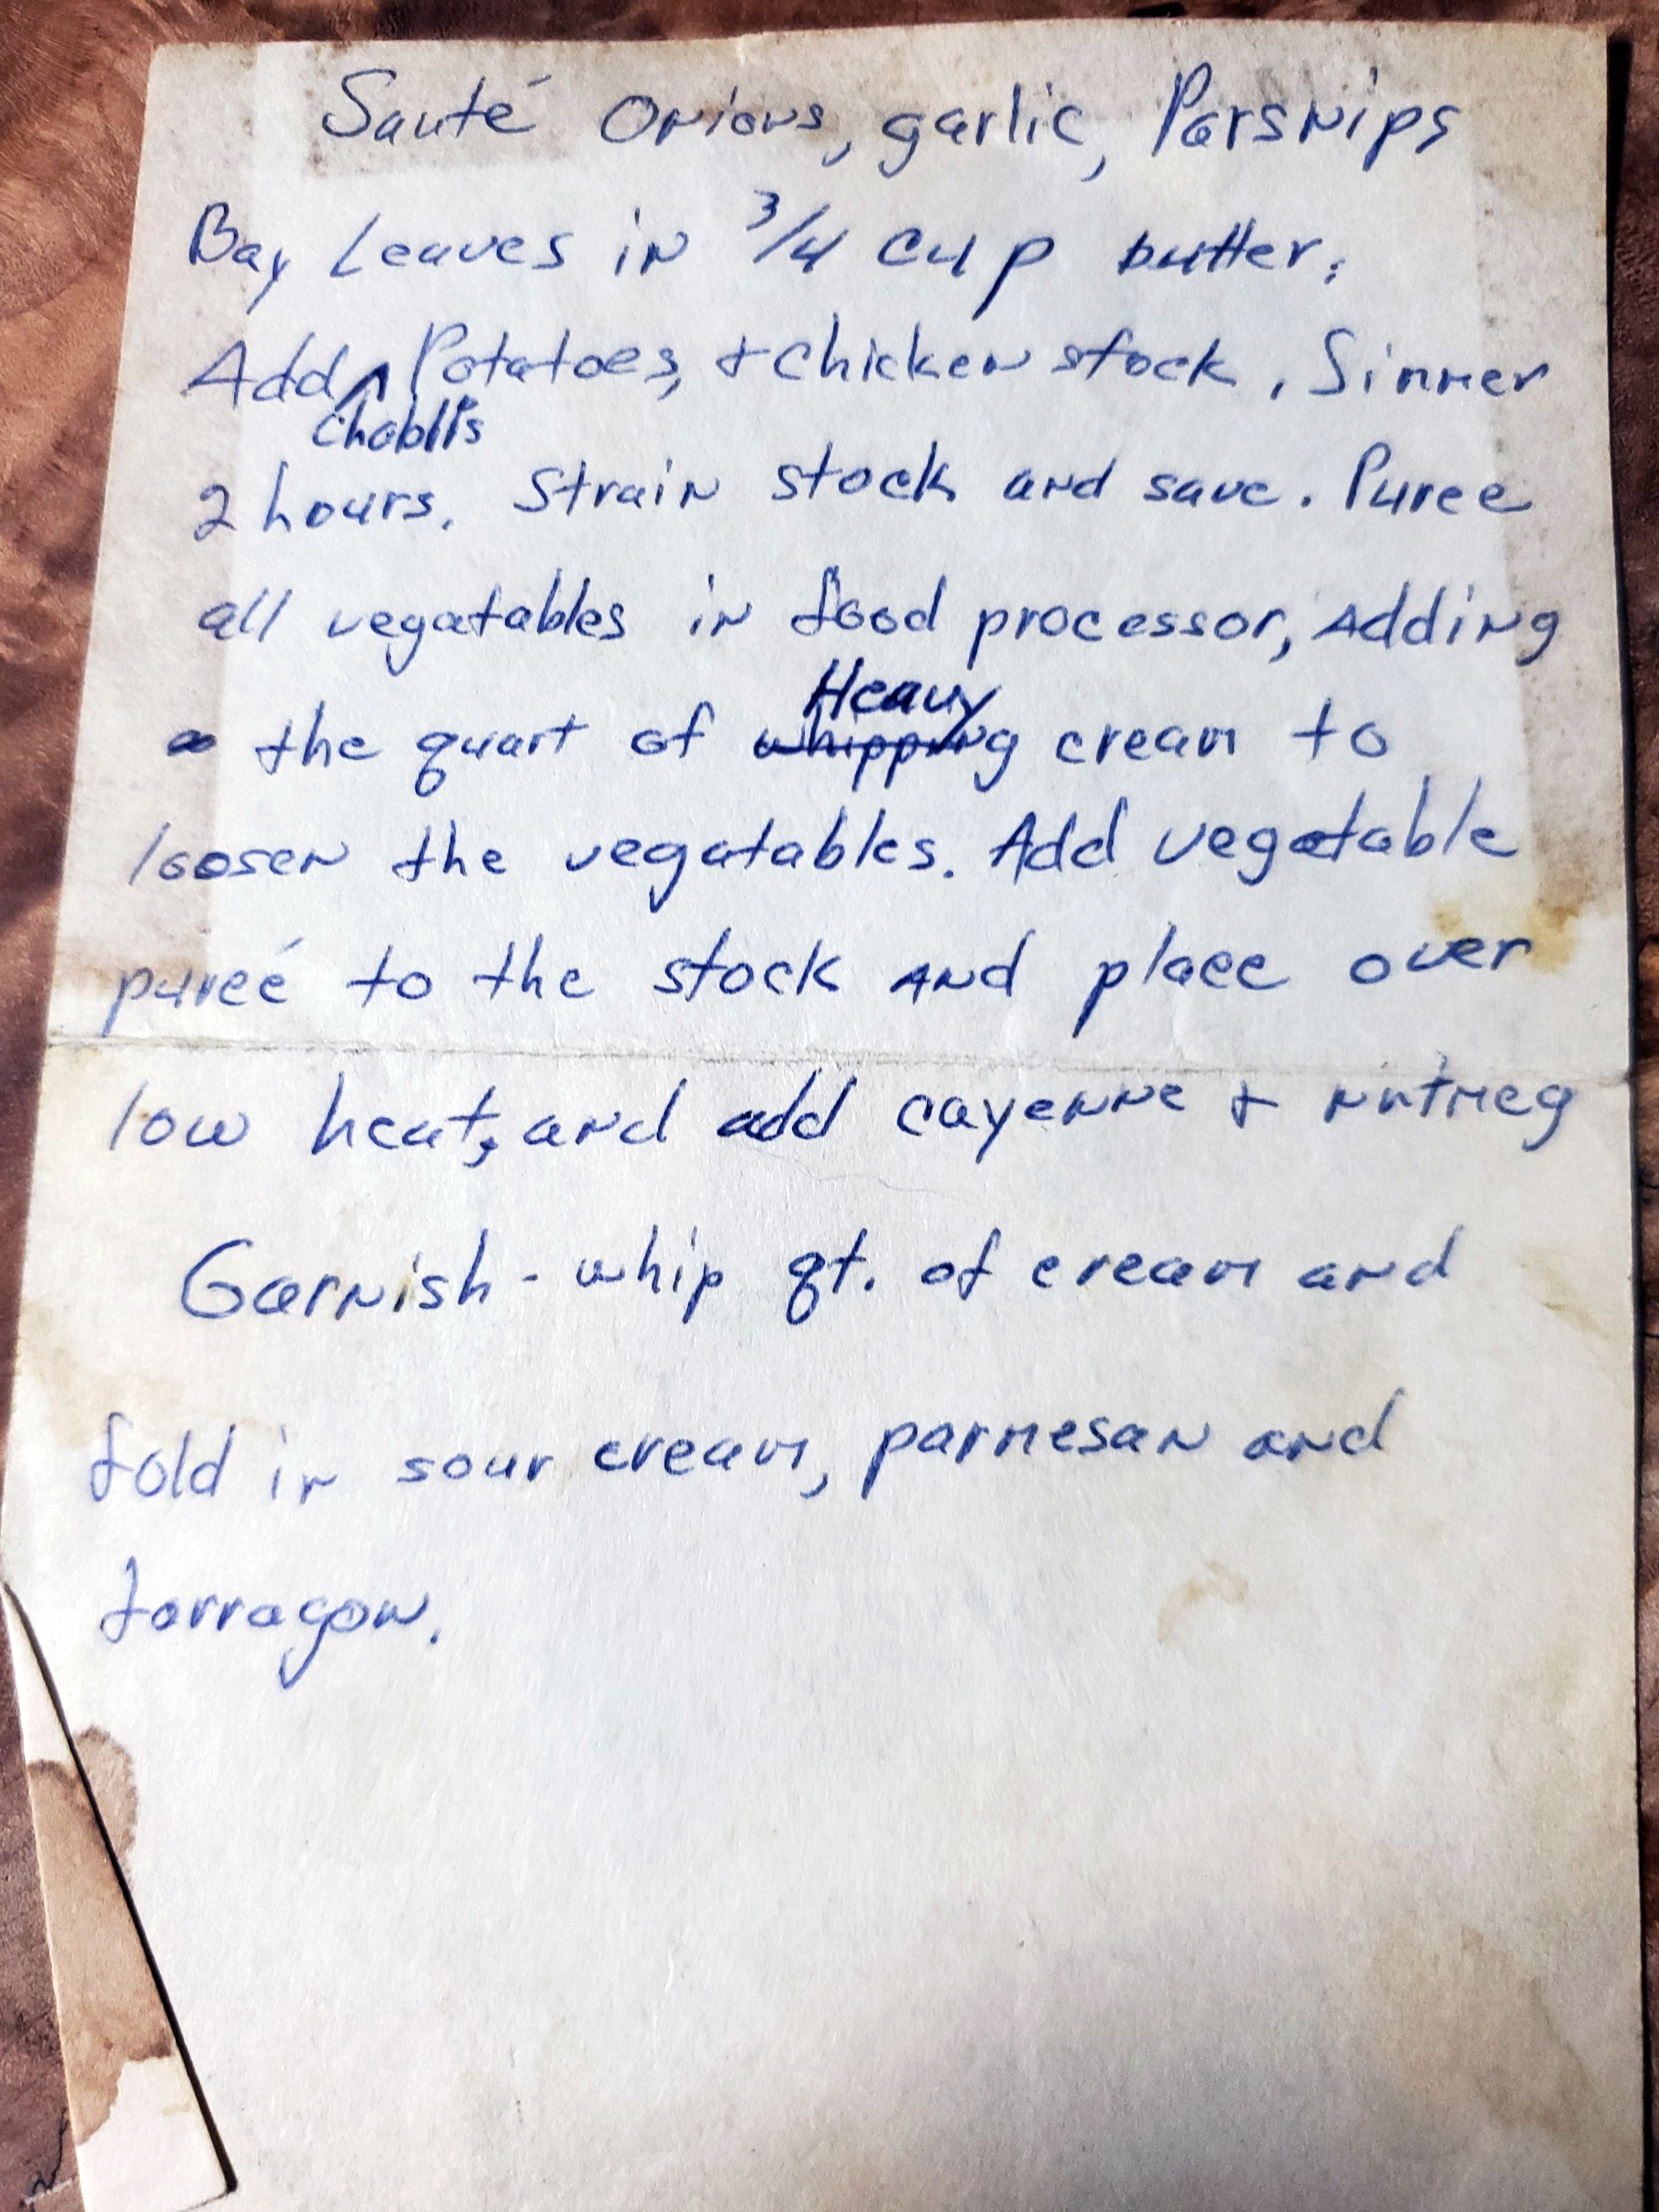 Sauté Onions, garlic, Parsnips
Bay Leaves in 3/4 cup butter.
Add ^ Potatoes, & chicken stock. Simmer
Chablis
2 hours. Strain stock and save. Puree
all vegatables in food processor, Adding
the quart of whipping Heavy cream to
loosen the vegatables. Add vegatable
pureé to the stock AND place over
low heat, and add cayenne & nutmeg
Garnish - whip qt. of cream and
fold in sour cream, parmesan and
tarragon.